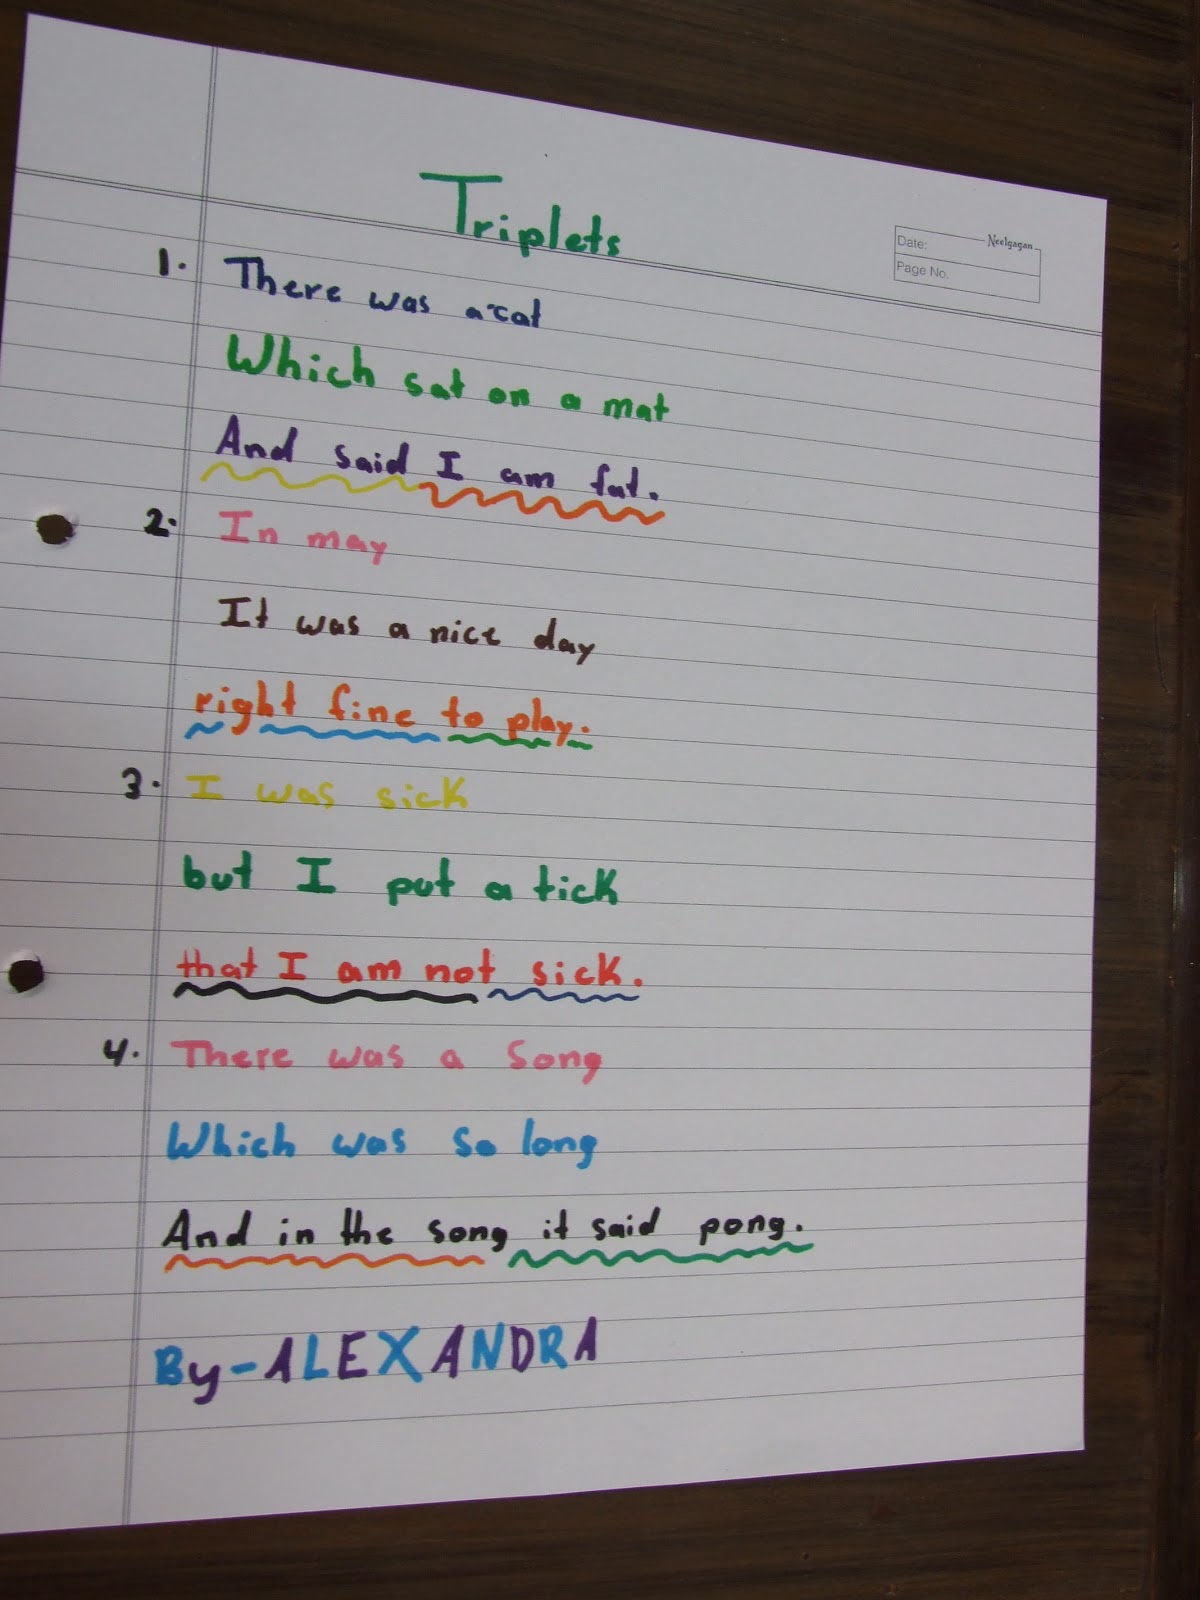 Triplets
Neelgagan
Date:
Page No.
1. There was a cat
Which sat on a mat
And said I am fat.
2. In may
It was a nice day
right fine to play.
3. I was sick
but I put a tick
that I am not sick.
4. There was a Song
Which was so long
And in the song it said pong.
By-ALEXANDRA